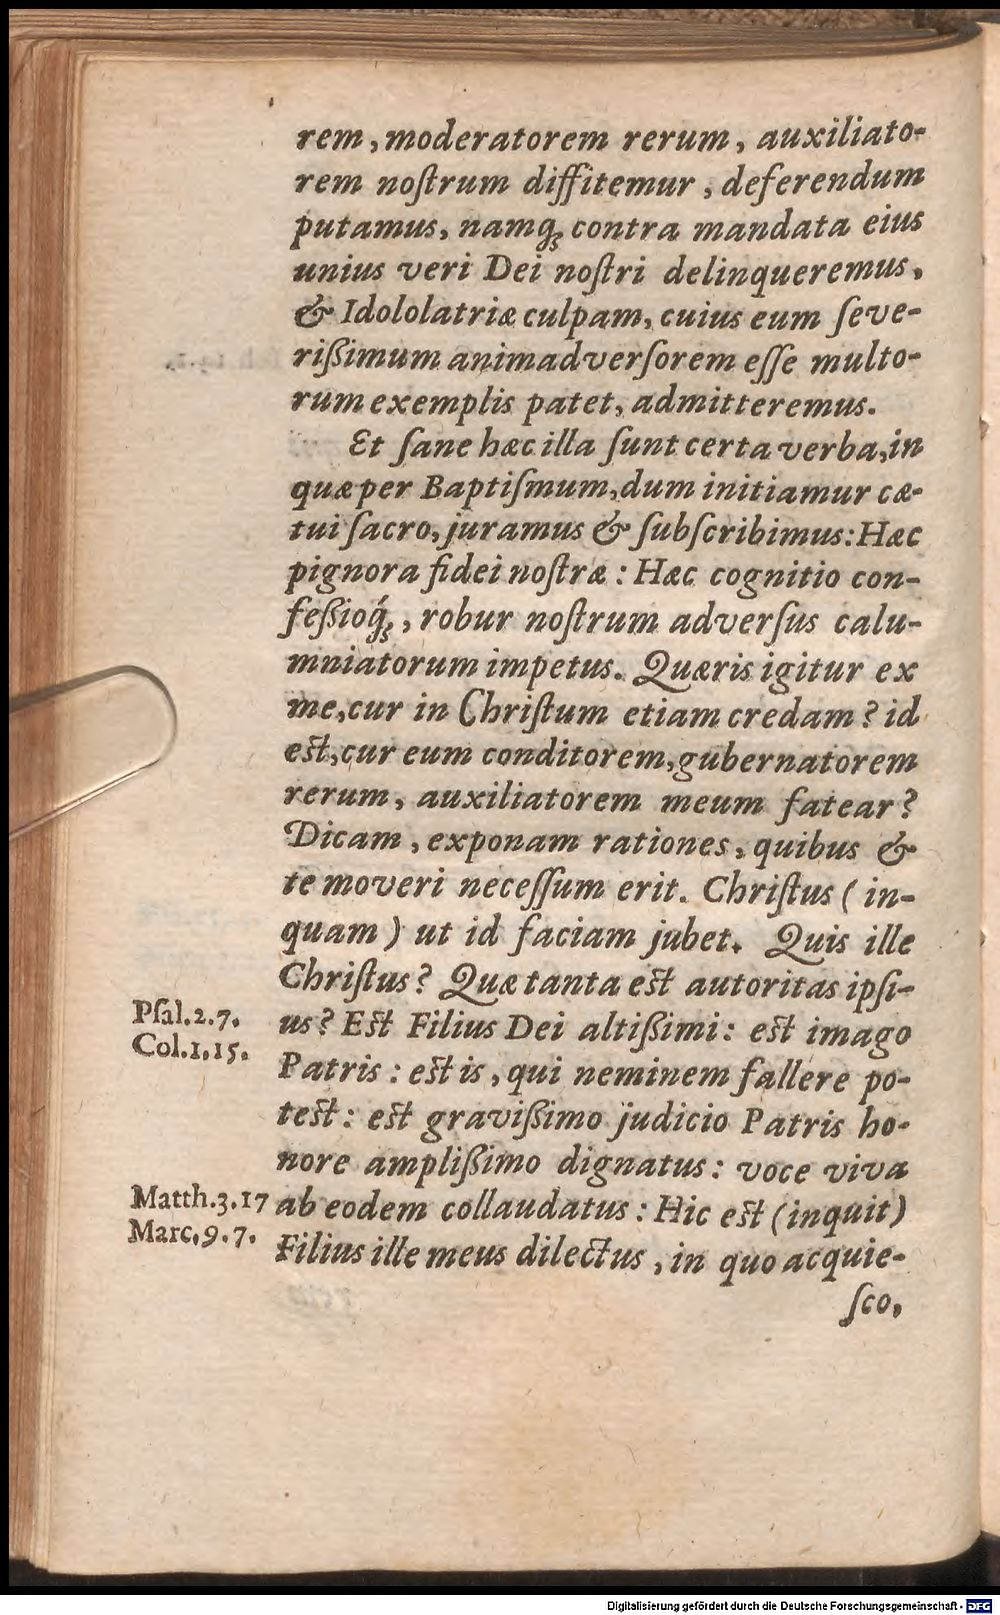 rem, moderatorem rerum, auxiliato-
rem noſtrum diffitemur, deferendum
putamus, namq́; contra mandata eius
unius veri Dei noſtri delinqueremus,
& Idololatriæ culpam, cuius eum ſeve-
rißimum animadverſorem eſſe multo-
rum exemplis patet, admitteremus.
Et ſane hæc illa ſunt certa verba, in
quæ per Baptiſmum, dum initiamur cæ-
tui ſacro, juramus & ſubſcribimus: Hæc
pignora fidei noſtræ: Hæc cognitio con-
feßioq́;, robur noſtrum adverſus calu-
mniatorum impetus. Quæris igitur ex
me, cur in Chriſtum etiam credam? id
eſt, cur eum conditorem, gubernatorem
rerum, auxiliatorem meum fatear?
Dicam, exponam rationes, quibus &
te moveri neceſſum erit. Chriſtus (in-
quam) ut id faciam jubet. Quis ille
Chriſtus? Quæ tanta eſt autoritas ipſi-
Pſal.2.7. us? Eſt Filius Dei altißimi: eſt imago
Col.1.15. Patris: eſt is, qui neminem fallere po-
teſt: eſt gravißimo judicio Patris ho-
nore amplißimo dignatus: voce viva
Matth.3.17 ab eodem collaudatus: Hic eſt (inquit)
Marc.9.7. Filius ille meus dilectus, in quo acquie-
ſco,
Digitalisierung gefördert durch die Deutsche Forschungsgemeinschaft - DFG